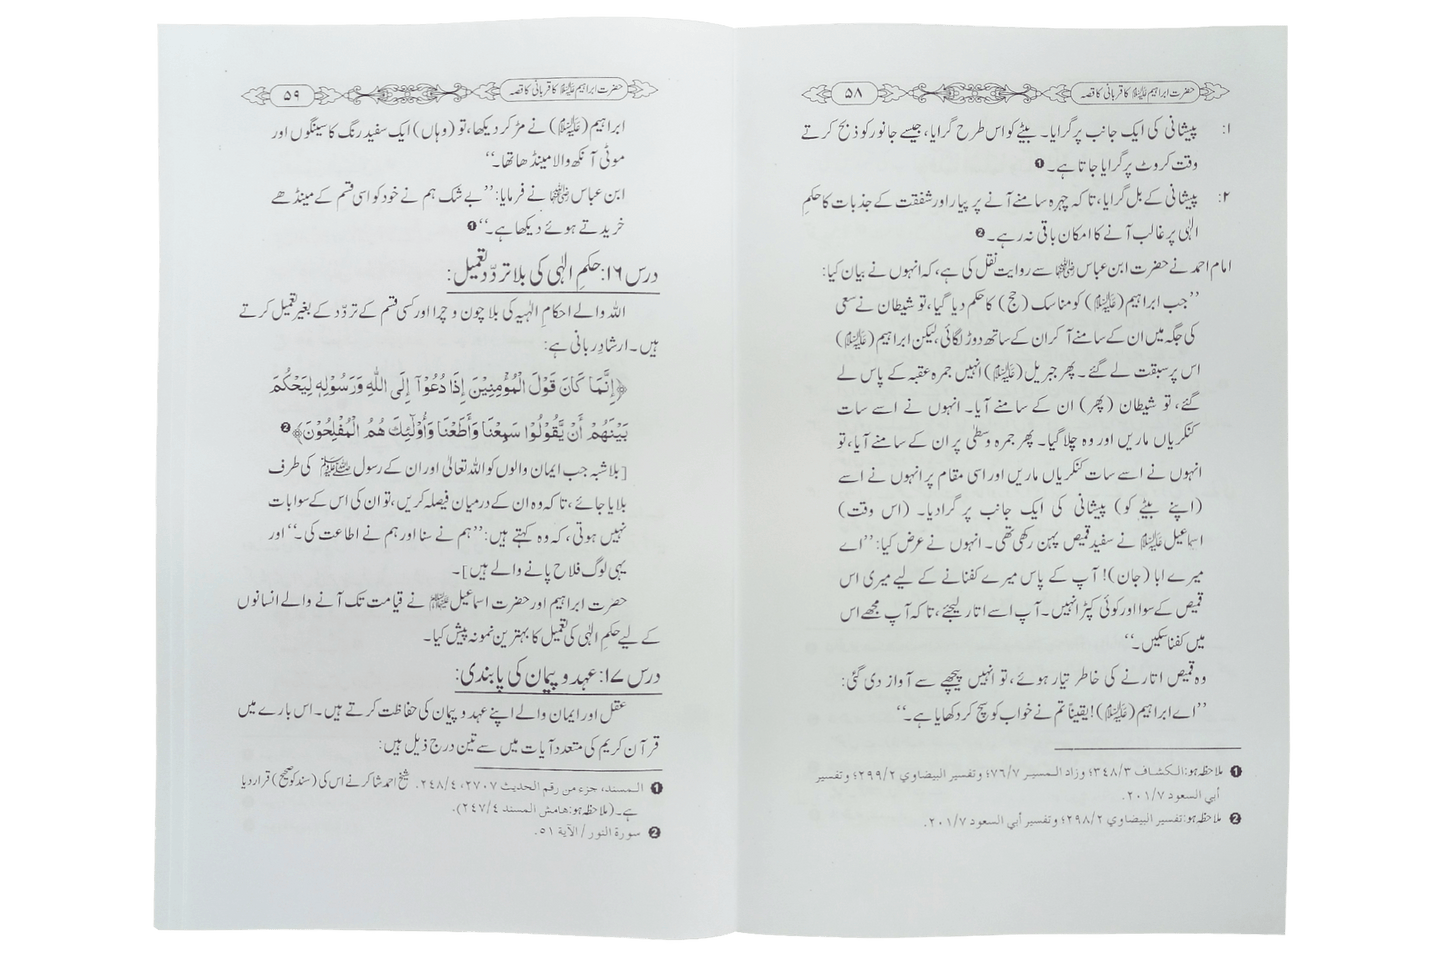 حضرت ابراہیم علیہ السلام کا قربانی کا قصہ
۵۸
۱: پیشانی کی ایک جانب پر گرایا۔ بیٹے کو اس طرح گرایا، جیسے جانور کو ذبح کرتے
وقت کروٹ پر گرایا جاتا ہے۔ ❶
۲: پیشانی کے بل گرایا، تا کہ چہرہ سامنے آنے پر پیار اور شفقت کے جذبات کا حکمِ
الٰہی پر غالب آنے کا امکان باقی نہ رہے۔ ❷
امام احمد نے حضرت ابن عباس رضی اللہ عنہما سے روایت نقل کی ہے، کہ انہوں نے بیان کیا:
’’جب ابراہیم (علیہ السلام) کو مناسک (حج) کا حکم دیا گیا، تو شیطان نے سعی
کی جگہ میں ان کے سامنے آ کر ان کے ساتھ دوڑ لگائی، لیکن ابراہیم (علیہ السلام)
اس پر سبقت لے گئے۔ پھر جبریل (علیہ السلام) انہیں جمرہ عقبہ کے پاس لے
گئے، تو شیطان (پھر) ان کے سامنے آیا۔ انہوں نے اسے سات
کنکریاں ماریں اور وہ چلا گیا۔ پھر جمرہ وسطیٰ پر ان کے سامنے آیا، تو
انہوں نے اسے سات کنکریاں ماریں اور اسی مقام پر انہوں نے اسے
(اپنے بیٹے کو) پیشانی کی ایک جانب پر گرا دیا۔ (اس وقت)
اسماعیل علیہ السلام نے سفید قمیص پہن رکھی تھی۔ انہوں نے عرض کیا: ’’اے
میرے ابا (جان)! آپ کے پاس میرے کفنانے کے لیے میری اس
قمیص کے سوا اور کوئی کپڑا نہیں۔ آپ اسے اتار لیجئے، تا کہ آپ مجھے اس
میں کفنا سکیں۔‘‘
وہ قمیص اتارنے کی خاطر تیار ہوئے، تو انہیں پیچھے سے آواز دی گئی:
’’اے ابراہیم (علیہ السلام)! یقیناً تم نے خواب کو سچ کر دکھایا ہے۔‘‘
❶ ملاحظہ ہو: الکشاف ۳۴۸/۳؛ وزاد المسیر ۷۶/۷؛ وتفسیر البیضاوي ۲۹۹/۲؛ وتفسیر
أبي السعود ۲۰۱/۷.
❷ ملاحظہ ہو: تفسیر البیضاوي ۲۹۸/۲؛ وتفسیر أبي السعود ۲۰۱/۷.
حضرت ابراہیم علیہ السلام کا قربانی کا قصہ
۵۹
ابراہیم (علیہ السلام) نے مڑ کر دیکھا، تو (وہاں) ایک سفید رنگ کا سینگوں اور
موٹی آنکھ والا مینڈھا تھا۔‘‘
ابن عباس رضی اللہ عنہما نے فرمایا: ’’بے شک ہم نے خود کو اسی قسم کے مینڈھے
خریدتے ہوئے دیکھا ہے۔‘‘ ❶
درس ۱۶: حکمِ الٰہی کی بلا تردّد تعمیل:
اللہ والے احکامِ الٰہیہ کی بلا چون و چرا اور کسی قسم کے تردّد کے بغیر تعمیل کرتے
ہیں۔ ارشادِ ربانی ہے:
﴿إِنَّمَا كَانَ قَوْلَ الْمُؤْمِنِيْنَ إِذَا دُعُوْٓا إِلَى اللّٰهِ وَرَسُوْلِهٖ لِيَحْكُمَ
بَيْنَهُمْ أَنْ يَّقُوْلُوْا سَمِعْنَا وَأَطَعْنَا وَأُوْلٰٓئِكَ هُمُ الْمُفْلِحُوْنَ﴾ ❷
[بلاشبہ جب ایمان والوں کو اللہ تعالیٰ اور ان کے رسول صلی اللہ علیہ وسلم کی طرف
بلایا جائے، تا کہ وہ ان کے درمیان فیصلہ کریں، تو ان کی اس کے سوا بات
نہیں ہوتی، کہ وہ کہتے ہیں: ’’ہم نے سنا اور ہم نے اطاعت کی۔‘‘ اور
یہی لوگ فلاح پانے والے ہیں]۔
حضرت ابراہیم اور حضرت اسماعیل علیہما السلام نے قیامت تک آنے والے انسانوں
کے لیے حکمِ الٰہی کی تعمیل کا بہترین نمونہ پیش کیا۔
درس ۱۷: عہد و پیمان کی پابندی:
عقل اور ایمان والے اپنے عہد و پیمان کی حفاظت کرتے ہیں۔ اس بارے میں
قرآن کریم کی متعدد آیات میں سے تین درج ذیل ہیں:
❶ المسند، جزء من رقم الحدیث ۲۷۰۷، ۲۴۸/۴. شیخ احمد شاکر نے اس کی (سند کو صحیح) قرار دیا
ہے۔ (ملاحظہ ہو: هامش المسند ۲۴۷/۴).
❷ سورة النور / الآیة ۵۱.